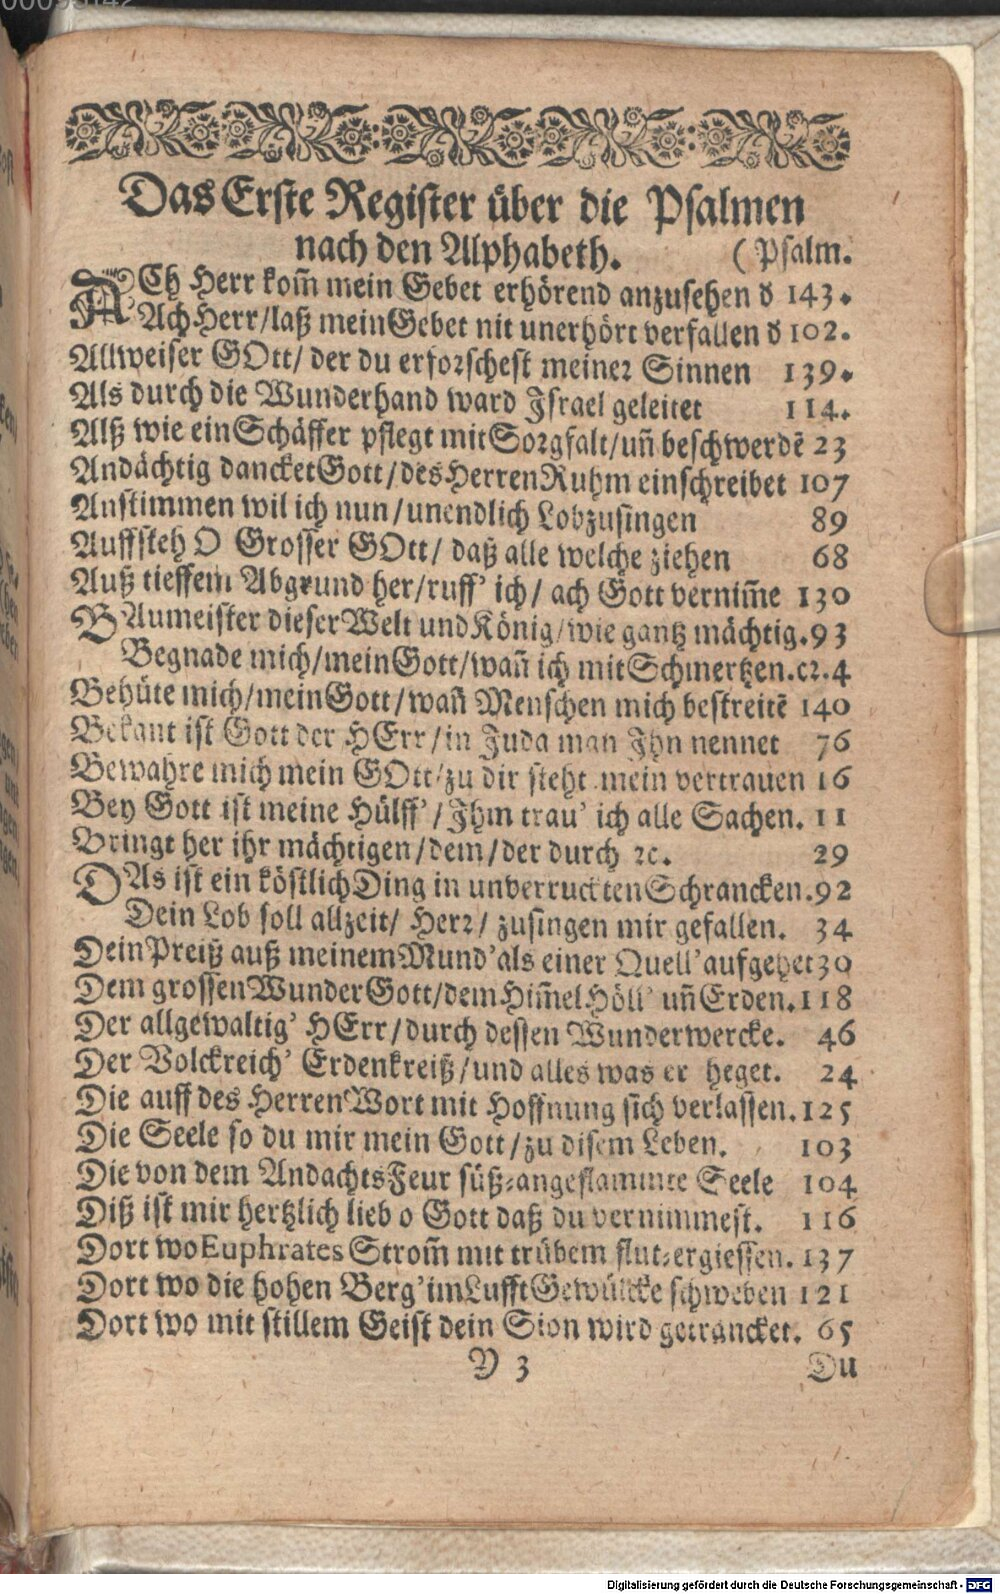 Das Erste Register über die Psalmen
nach den Alphabeth. (Psalm.
ACh Herr kom̃ mein Gebet erhörend anzusehen d 143.
Ach Herr/laß mein Gebet nit unerhört verfallen d 102.
Allweiser GOtt/ der du erforschest meiner Sinnen 139.
Als durch die Wunderhand ward Israel geleitet 114.
Alß wie ein Schäffer pflegt mit Sorgfalt/un̄ beschwerdē 23
Andächtig dancket Gott/des Herren Ruhm einschreibet 107
Anstimmen wil ich nun/unendlich Lobzusingen 89
Auffsteh O Grosser GOtt/ daß alle welche ziehen 68
Auß tieffem Abgrund her/ruff' ich/ ach Gott vernim̃e 130
BAumeister dieser Welt und König/wie gantz mächtig. 93
Begnade mich/mein Gott/wan̄ ich mit Schmertzen.ꝛc. 4
Behüte mich/mein Gott/wan̄ Menschen mich bestreitē 140
Bekant ist Gott der HErr/in Juda man Ihn nennet 76
Bewahre mich mein GOtt/zu dir steht mein vertrauen 16
Bey Gott ist meine Hülff'/Ihm trau' ich alle Sachen. 11
Bringt her ihr mächtigen/dem/der durch ꝛc. 29
DAs ist ein köstlich Ding in unverruckten Schrancken. 92
Dein Lob soll allzeit/ Herr/ zusingen mir gefallen. 34
Dein Preiß auß meinem Mund' als einer Quell' aufgehet 30
Dem grossen Wunder Gott/dem Him̃el Höll' un̄ Erden. 118
Der allgewaltig' HErr/durch dessen Wunderwercke. 46
Der Volckreich' Erdenkreiß/und alles was er heget. 24
Die auff des Herren Wort mit Hoffnung sich verlassen. 125
Die Seele so du mir mein Gott/zu disem Leben. 103
Die von dem Andachts Feur süß-angeflammte Seele 104
Diß ist mir hertzlich lieb o Gott daß du vernimmest. 116
Dort wo Euphrates Strom̃ mit trübem flut-ergiessen. 137
Dort wo die hohen Berg' im Lufft Gewülcke schweben 121
Dort wo mit stillem Geist dein Sion wird getrancket. 65
Y 3 Du
Digitalisierung gefördert durch die Deutsche Forschungsgemeinschaft - DFG